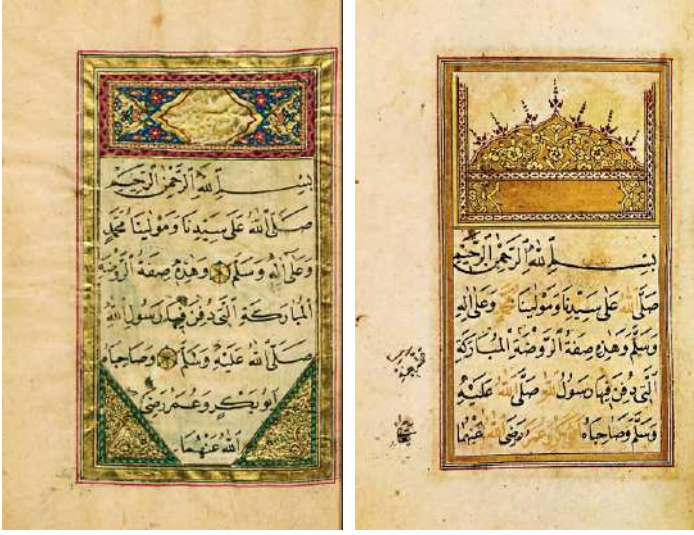 بِسْمِ ٱللَّهِ ٱلرَّحْمٰنِ ٱلرَّحِيمِ
صَلَّى ٱللَّهُ عَلَى سَيِّدِنَا وَمَوْلٰينَا مُحَمَّدٍ
وَعَلَى اٰلِهِ وَسَلَّمَ وَهٰذِهِ صِفَةُ ٱلرَّوْضَةِ
ٱلْمُبَارَكَةِ ٱلَّتِي دُفِنَ فِيهَا رَسُولُ ٱللَّهِ
صَلَّى ٱللَّهُ عَلَيْهِ وَسَلَّمَ وَصَاحِبَاهُ
اَبُو بَكْرٍ وَعُمَرُ رَضِيَ
ٱللَّهُ عَنْهُمَا
بِسْمِ ٱللَّهِ ٱلرَّحْمٰنِ ٱلرَّحِيمِ
صَلَّى ٱللَّهُ عَلَى سَيِّدِنَا وَمَوْلٰينَا مُحَمَّدٍ وَعَلَى اٰلِهِ
وَسَلَّمَ وَهٰذِهِ صِفَةُ ٱلرَّوْضَةِ ٱلْمُبَارَكَةِ
ٱلَّتِي دُفِنَ فِيهَا رَسُولُ ٱللَّهِ صَلَّى ٱللَّهُ عَلَيْهِ
وَسَلَّمَ وَصَاحِبَاهُ اَبُو بَكْرٍ وَعُمَرُ رَضِيَ ٱللَّهُ عَنْهُمَا